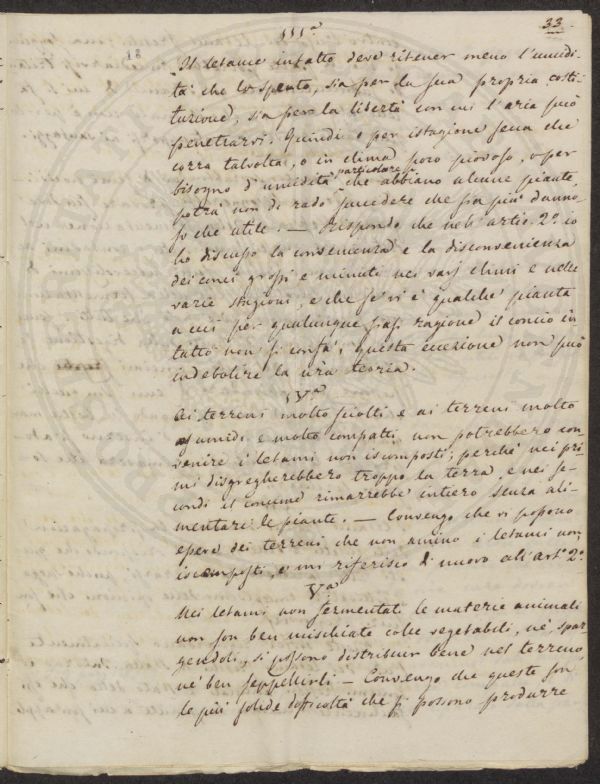 33.
IIIª
18
Il letame infatto deve ritener meno l'umidi-
tà che lo spento, sia per la sua propria costi-
tuzione, sia per la libertà con cui l'aria può
penetrarvi. Quindi o per istagione secca che
corra talvolta, o in clima poco piovoso, o per
bisogno d'umidità particolare che abbiano alcune piante,
potrà non di rado succedere che sia più danno-
so che utile. — Rispondo che nell'artic. 2º io
ho discusso la convenienza e la disconvenienza
dei conci grossi e minuti nei varj climi e nelle
varie stagioni, e che se vi è qualche pianta
a cui per qualunque siasi ragione il concio in
tutto non si confà, questa eccezione non può
indebolire la vra teoria.
IVª
Ai terreni molto sciolti e ai terreni molto
umidi e molto compatti non potrebbero con
venire i letami non iscomposti; perchè nei pri
mi disgregherebbero troppo la terra, e nei se-
condi il concime rimarrebbe intiero senza ali-
mentare le piante. — Convengo che vi possono
essere dei terreni che non amino i letami non
iscomposti, e mi riferisco di nuovo all'artº 2º
Vª
Nei letami non fermentati le materie animali
non son ben mischiate colle vegetabili, nè, spar-
gendoli, si possono distribuir bene nel terreno,
nè ben seppellirli — Convengo che queste son
le più solide difficoltà che si possono produrre